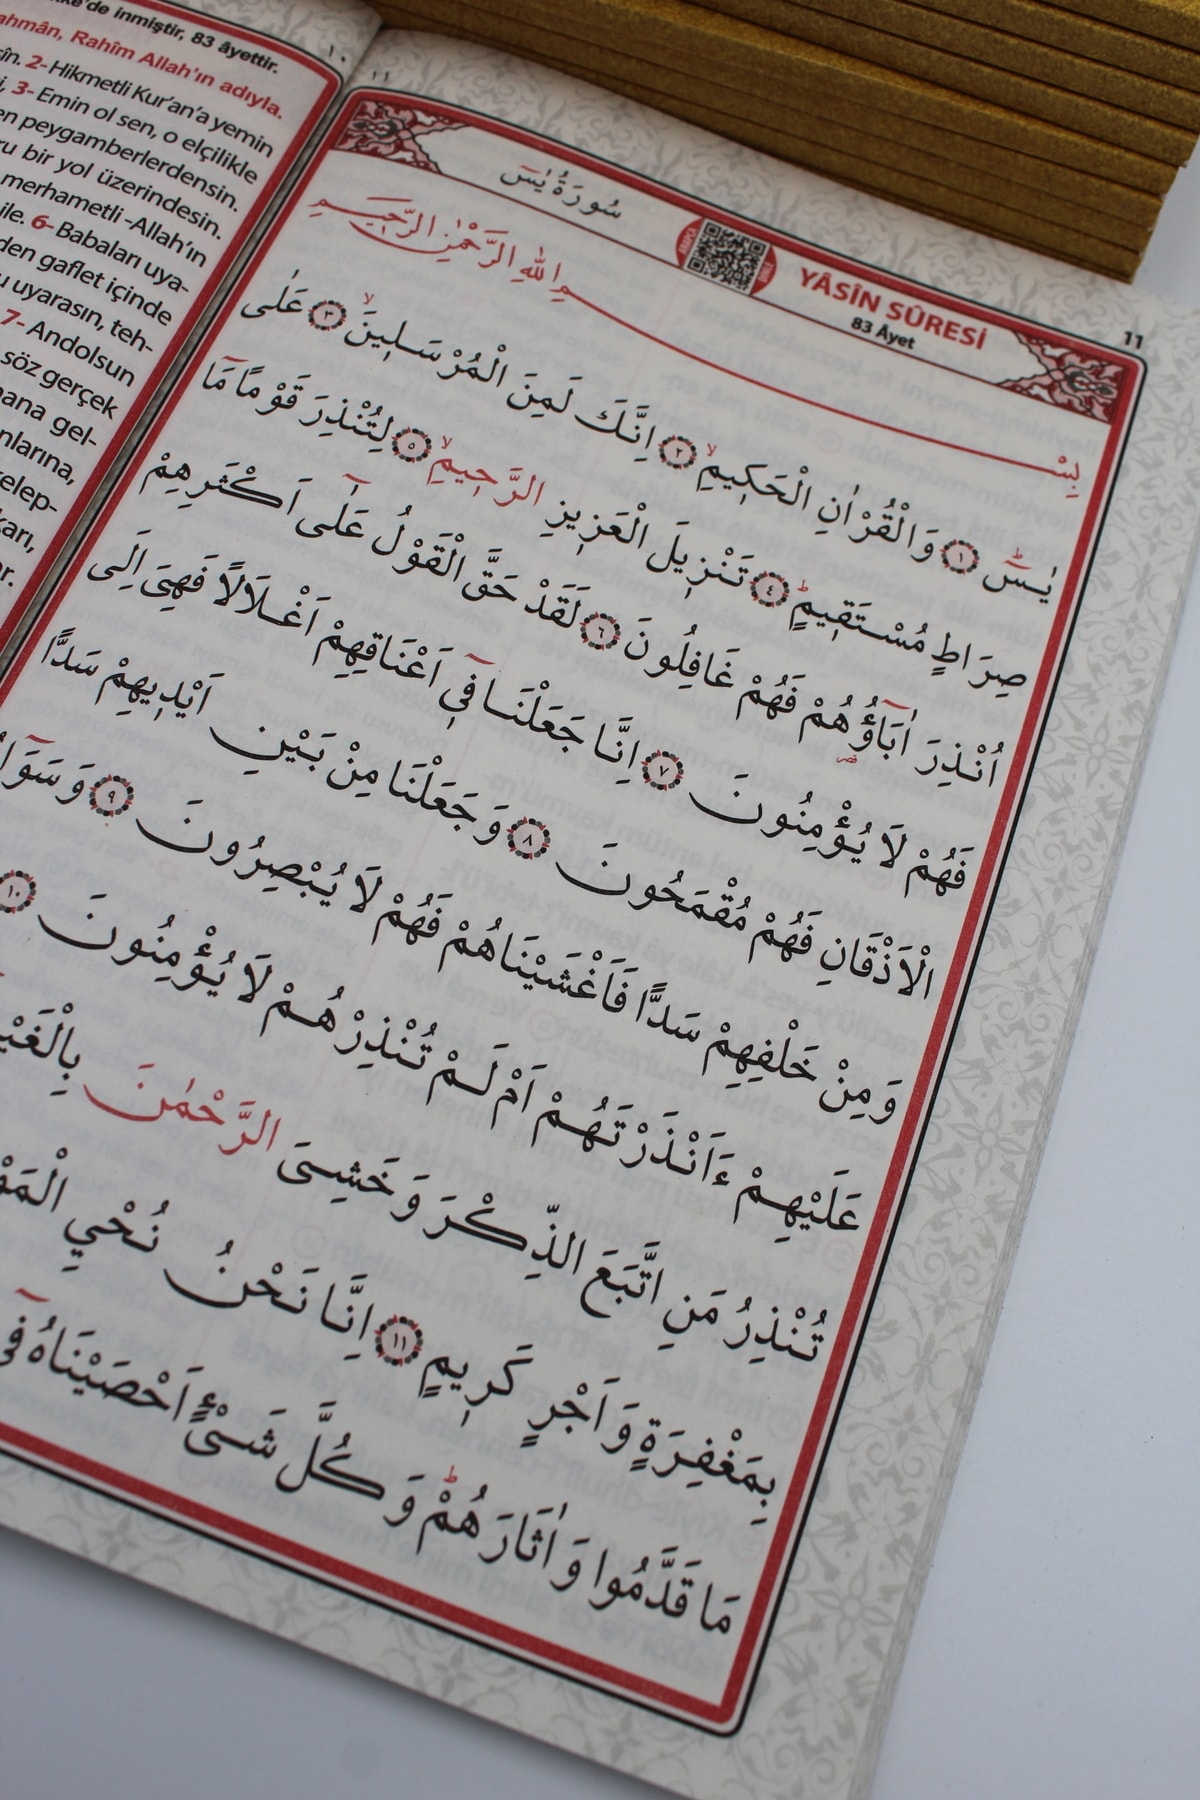 kke'de inmiştir, 83 âyettir.
ahmân, Rahîm Allah'ın adıyla.
sîn. 2- Hikmetli Kur'an'a yemin
3- Emin ol sen, o elçilikle
en peygamberlerdensin.
ru bir yol üzerindesin.
merhametli -Allah'ın
ile. 6- Babaları uya-
den gaflet içinde
u uyarasın, teh-
7- Andolsun
söz gerçek
ana gel-
nlarına,
elep-
karı,
ar.
١٠
١١
سُورَةُ يٰسٓ
ARAPÇA
YÂSÎN SÛRESİ
83 Âyet
11
بِسْمِ اللهِ الرَّحْمٰنِ الرَّحِيمِ
يٰسٓ ﴿١﴾ وَالْقُرْاٰنِ الْحَكِيمِ ﴿٢﴾ اِنَّكَ لَمِنَ الْمُرْسَلِينَ ﴿٣﴾ عَلٰى
صِرَاطٍ مُسْتَقِيمٍ ﴿٤﴾ تَنْزِيلَ الْعَزِيزِ الرَّحِيمِ ﴿٥﴾ لِتُنْذِرَ قَوْمًا مَٓا
اُنْذِرَ اٰبَٓاؤُ۬هُمْ فَهُمْ غَافِلُونَ ﴿٦﴾ لَقَدْ حَقَّ الْقَوْلُ عَلٰٓى اَكْثَرِهِمْ
فَهُمْ لَا يُؤْمِنُونَ ﴿٧﴾ اِنَّا جَعَلْنَا فٓى اَعْنَاقِهِمْ اَغْلَالًا فَهِىَ اِلَى
الْاَذْقَانِ فَهُمْ مُقْمَحُونَ ﴿٨﴾ وَجَعَلْنَا مِنْ بَيْنِ اَيْدِيهِمْ سَدًّا
وَمِنْ خَلْفِهِمْ سَدًّا فَاَغْشَيْنَاهُمْ فَهُمْ لَا يُبْصِرُونَ ﴿٩﴾ وَسَوَٓاءٌ
عَلَيْهِمْ ءَاَنْذَرْتَهُمْ اَمْ لَمْ تُنْذِرْهُمْ لَا يُؤْمِنُونَ ﴿١٠﴾
تُنْذِرُ مَنِ اتَّبَعَ الذِّكْرَ وَخَشِىَ الرَّحْمٰنَ بِالْغَيْ
بِمَغْفِرَةٍ وَاَجْرٍ كَرِيمٍ ﴿١١﴾ اِنَّا نَحْنُ نُحْيِي الْمَوْ
مَا قَدَّمُوا وَاٰثَارَهُمْ وَكُلَّ شَىْءٍ اَحْصَيْنَاهُ فٓى